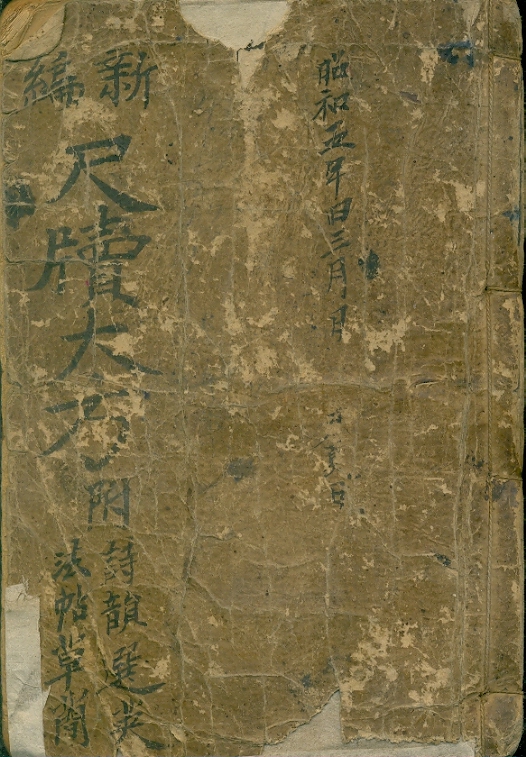 昭和五年旧三月日
新編
尺牘大方附
詩韻選英
法帖草簡